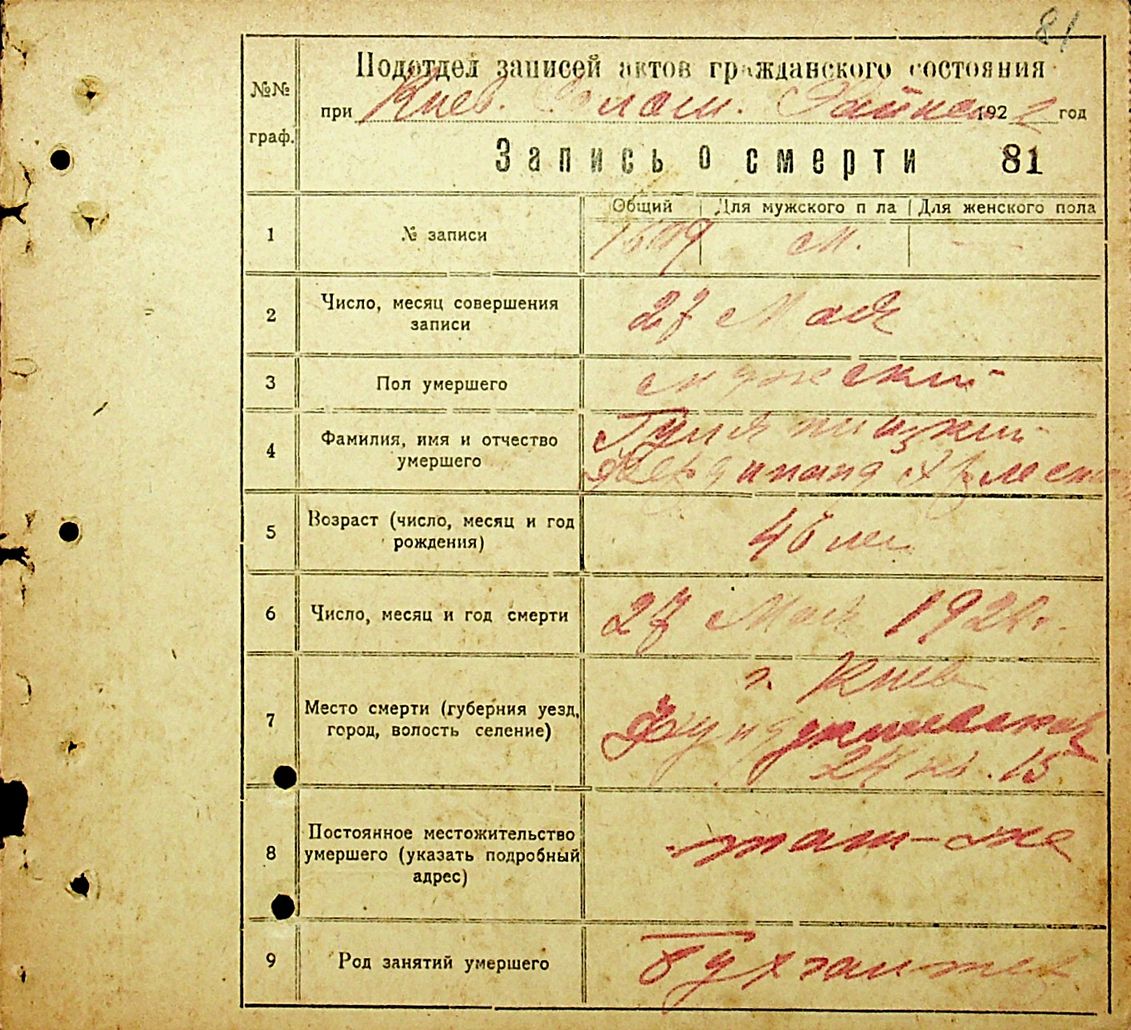 81
№№ граф.
Подотдел записей актов гражданского состояния
при Киев. 1922 год
Запись о смерти 81
Общий Для мужского п ла Для женского пола
1 № записи м.
2 Число, месяц совершения записи 27 Мая
3 Пол умершего мужской
4 Фамилия, имя и отчество умершего
Фердинанд
5 Возраст (число, месяц и год рождения) 46 лет
6 Число, месяц и год смерти 27 Мая 1922 г.
7 Место смерти (губерния уезд, город, волость селение) г. Киев
24 кв. 15
8 Постоянное местожительство умершего (указать подробный адрес) там-же
9 Род занятий умершего Бухгалтер